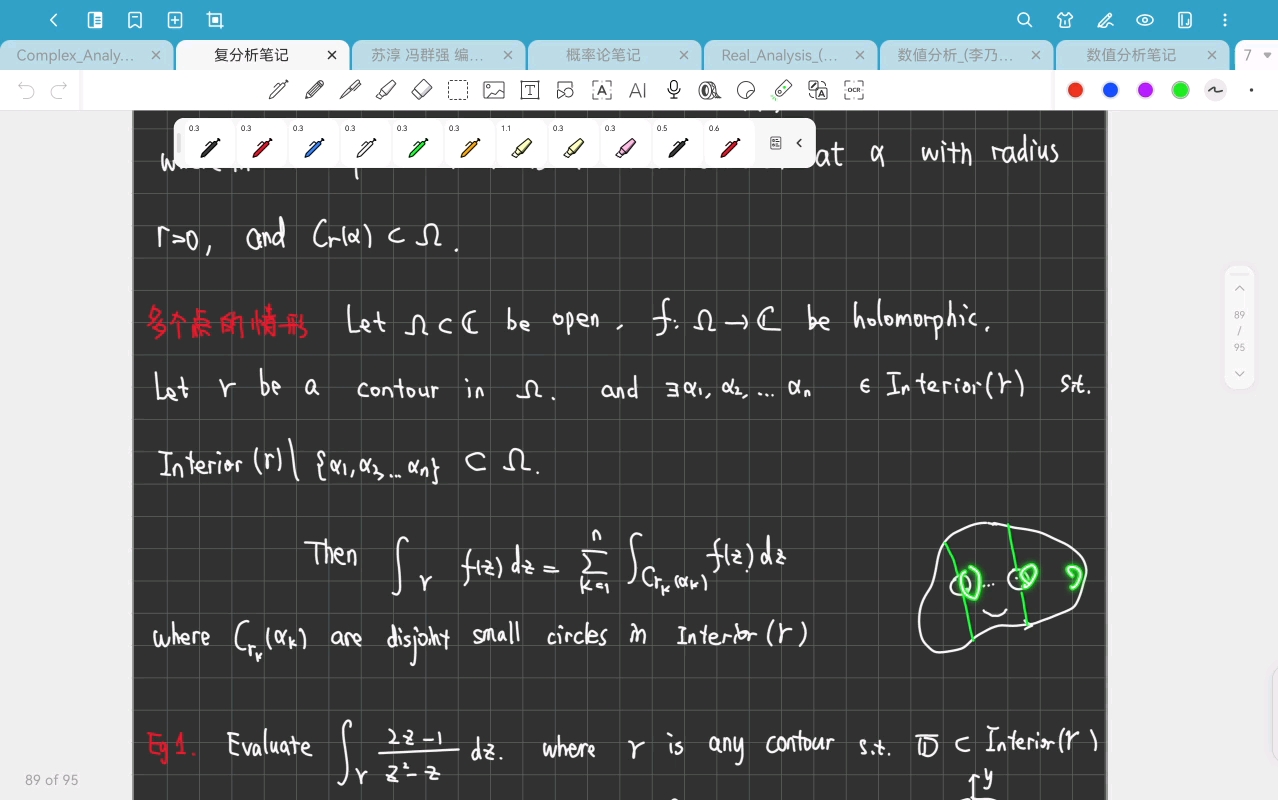 Complex_Analy...
复分析笔记
苏淳 冯群强 编...
概率论笔记
Real_Analysis_(...
数值分析_(李乃...
数值分析笔记
7
AI
OCR
0.3 0.3 0.3 0.3 0.3 0.3 1.1 0.3 0.3 0.5 0.6
at α with radius
r>0, and Cr(α) ⊂ Ω.
多个点的情形 Let Ω⊂ℂ be open, f: Ω→ℂ be holomorphic.
Let γ be a contour in Ω. and ∃α₁, α₂, ... αₙ ∈ Interior(γ) s.t.
Interior(γ)\ {α₁, α₂, ... αₙ} ⊂ Ω.
Then ∫_γ f(z) dz = ∑_{k=1}^{n} ∫_{C_{r_k}(α_k)} f(z) dz
where C_{r_k}(α_k) are disjoint small circles in Interior(γ)
Eg1. Evaluate ∫_γ (2z-1)/(z²-z) dz. where γ is any contour s.t. 𝔻̅ ⊂ Interior(γ)
y
89
/
95
89 of 95